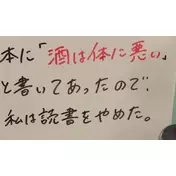 本に「酒は体に悪い」
と書いてあったので、
私は読書をやめた。